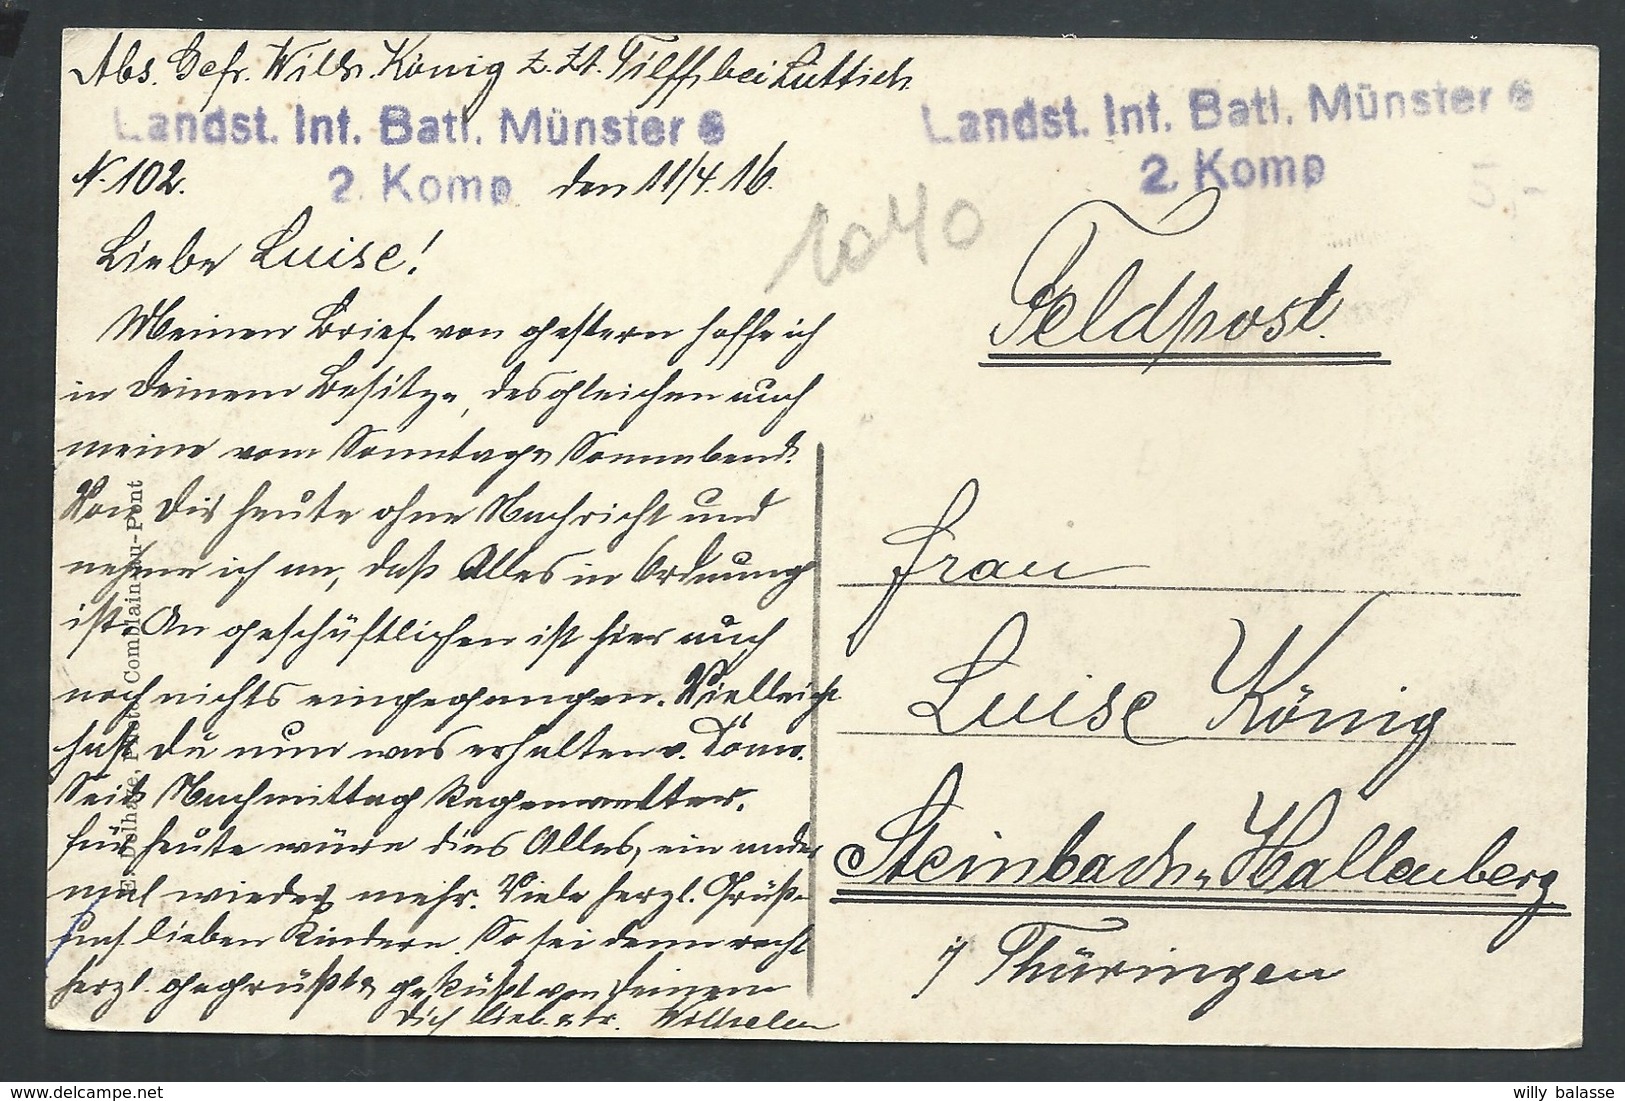 Abs. Gefr. Wilh. König z. Zt. Tilff bei Lüttich
Landst. Inf. Batl. Münster 6
2. Komp
N. 102.
den 11/4.16.
Liebe Luise!
Meinen Brief von gestern hoffe ich
in Deinem Besitze, desgleichen auch
meine vom Sonntag u. Sonnabend.
Von Dir heute ohne Nachricht und
nehme ich an, daß Alles in Ordnung
ist. An geschäftlichen ist hier auch
noch nichts eingegangen. Vielleicht
hast Du nun was erhalten v.
Seit Nachmittag Regenwetter.
Für heute wäre dies Alles, ein ander
mal wieder mehr. Viele herzl. Grüße
uns. lieben Kindern. So sei denn recht
herzl. gegrüßt u. geküßt von Deinem
Dich lieb. u. tr. Wilhelm
E. Delhaye, Photo, Comblain-au-Pont
Landst. Inf. Batl. Münster 6
2. Komp
1040
5,-
Feldpost.
Frau
Luise König
Steinbach-Hallenberg
i/ Thüringen
willy balasse